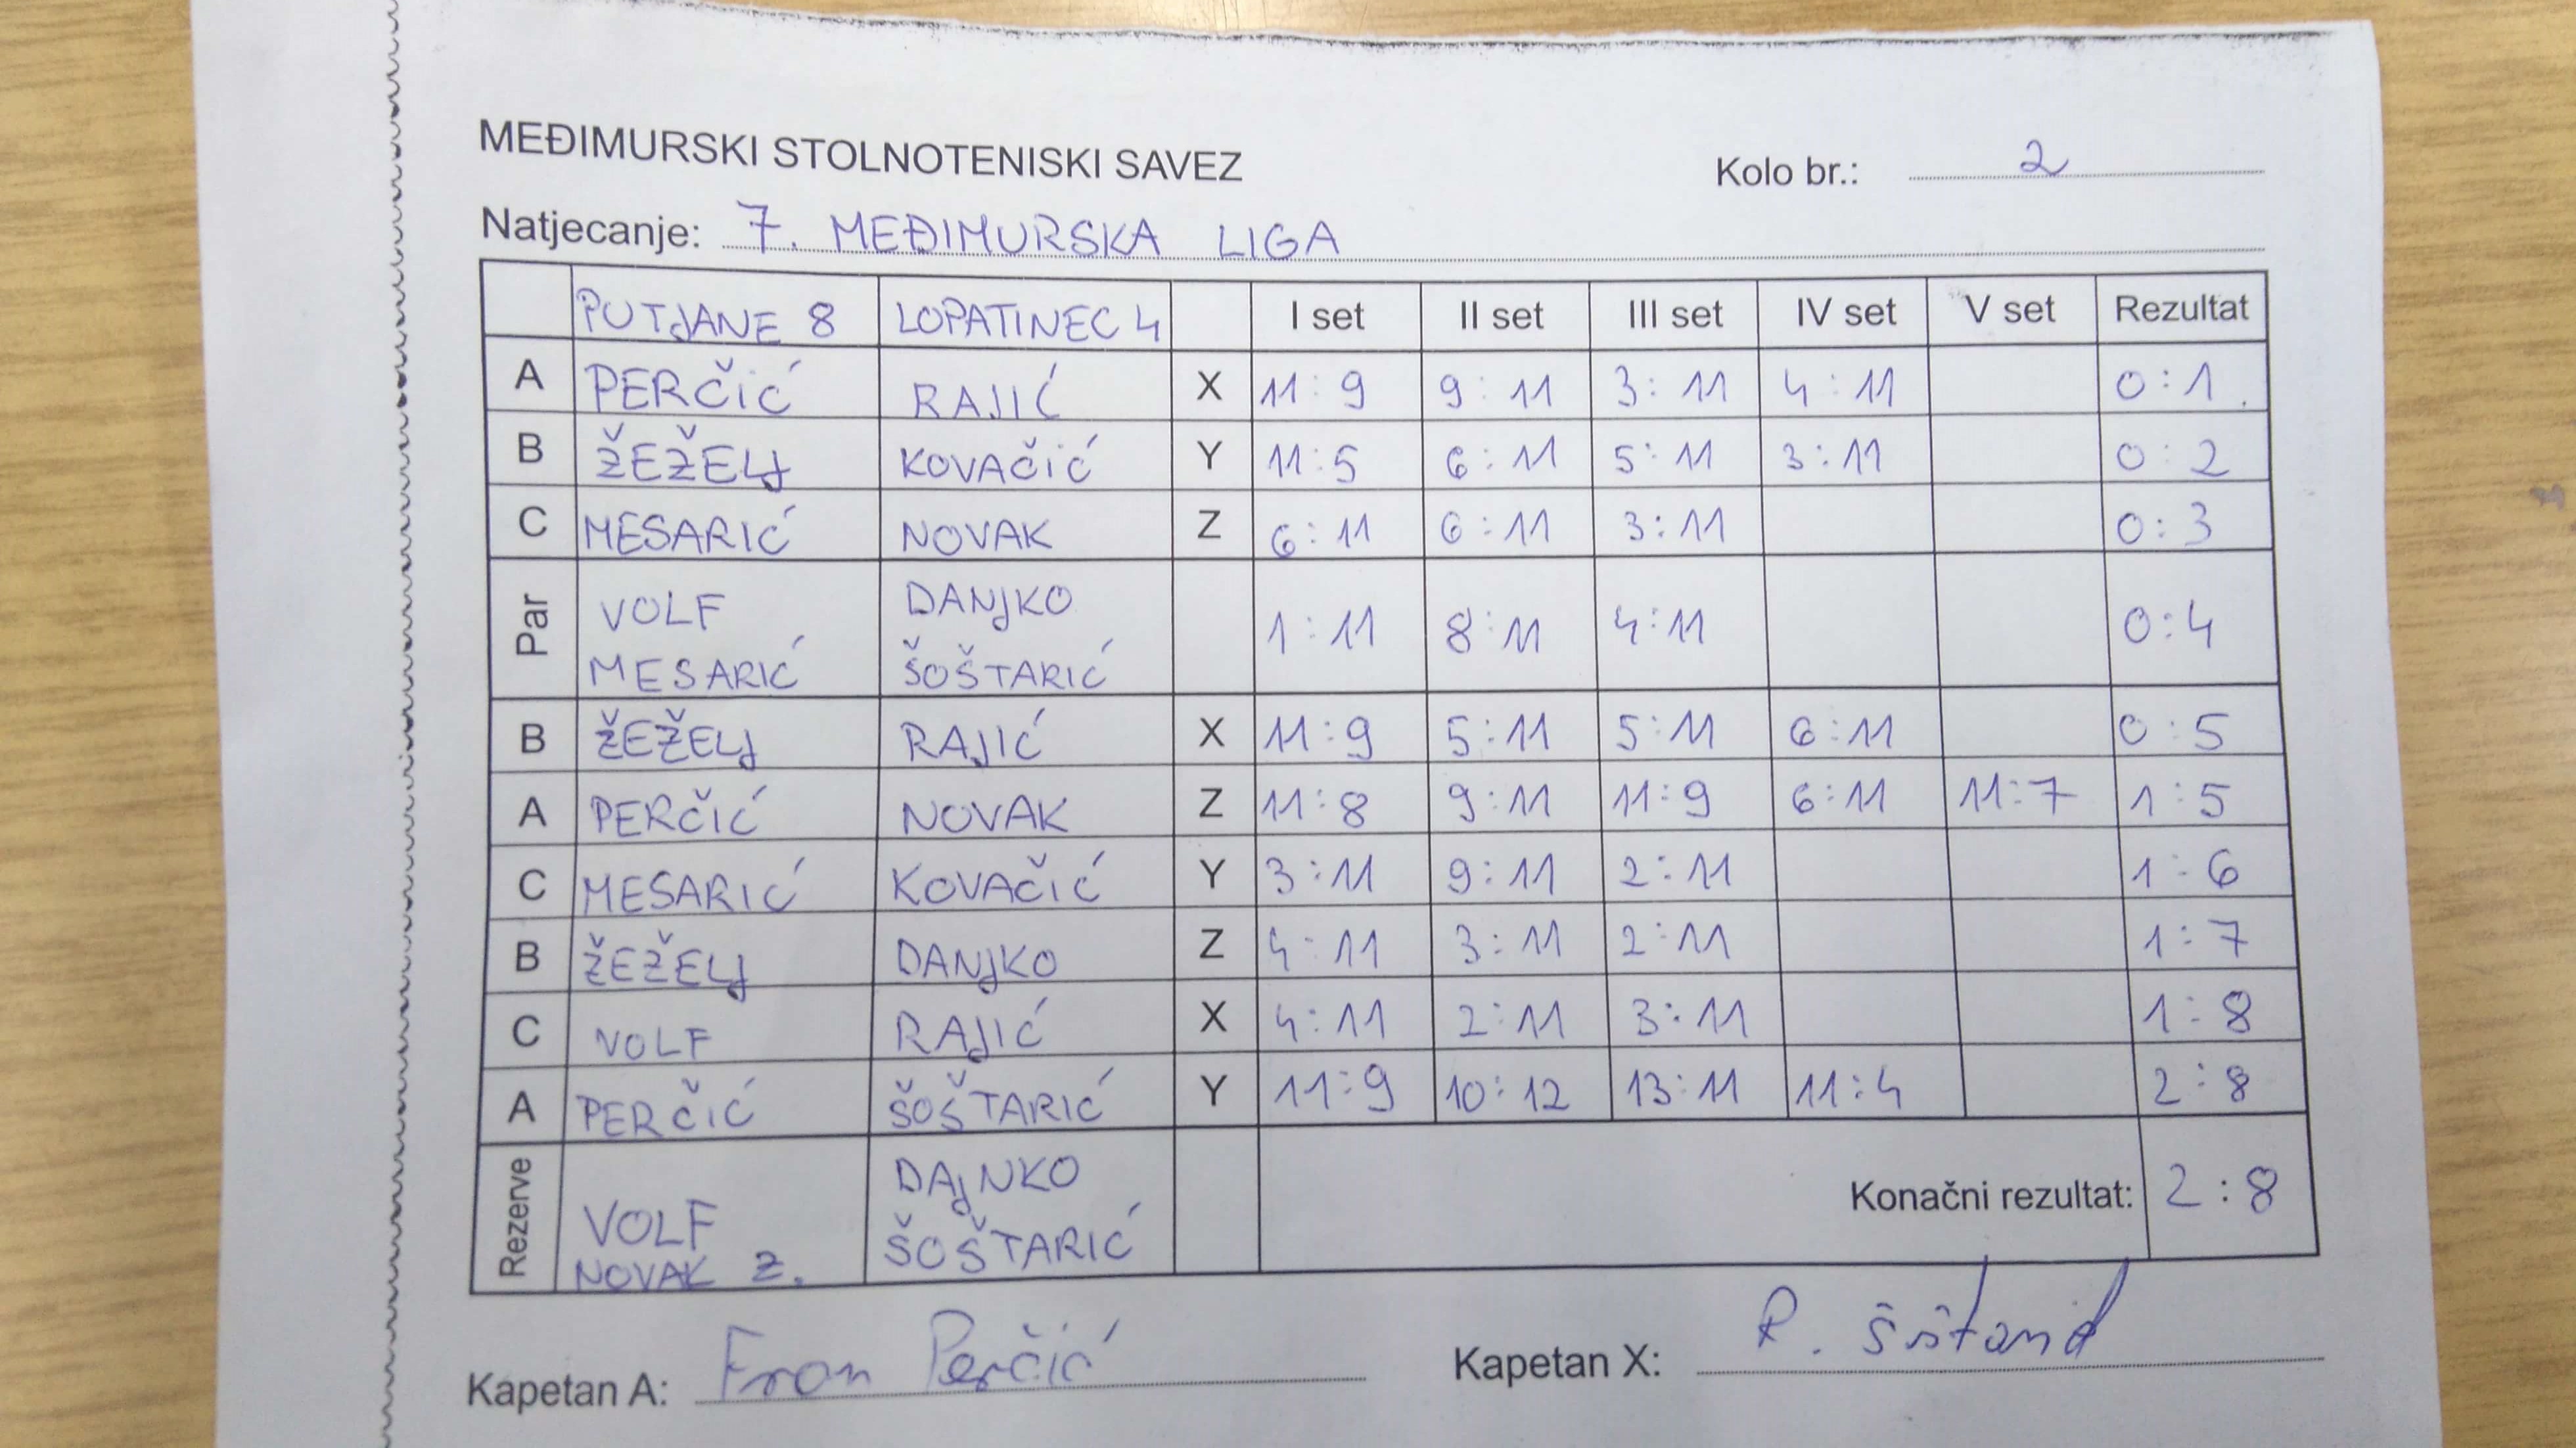 MEĐIMURSKI STOLNOTENISKI SAVEZ
Kolo br.: 2
Natjecanje: 7. MEĐIMURSKA LIGA
PUTJANE 8 LOPATINEC 4 I set II set III set IV set V set Rezultat
A PERČIĆ RAJIĆ X 11:9 9:11 3:11 4:11 0:1
B ŽEŽELJ KOVAČIĆ Y 11:5 6:11 5:11 3:11 0:2
C MESARIĆ NOVAK Z 6:11 6:11 3:11 0:3
Par VOLF MESARIĆ DANJKO ŠOŠTARIĆ 1:11 8:11 4:11 0:4
B ŽEŽELJ RAJIĆ X 11:9 5:11 5:11 6:11 0:5
A PERČIĆ NOVAK Z 11:8 9:11 11:9 6:11 11:7 1:5
C MESARIĆ KOVAČIĆ Y 3:11 9:11 2:11 1:6
B ŽEŽELJ DANJKO Z 4:11 3:11 2:11 1:7
C VOLF RAJIĆ X 4:11 2:11 3:11 1:8
A PERČIĆ ŠOŠTARIĆ Y 11:9 10:12 13:11 11:4 2:8
Rezerve VOLF NOVAK Z. DAJNKO ŠOŠTARIĆ Konačni rezultat: 2:8
Kapetan A: Fran Perčić Kapetan X: R.